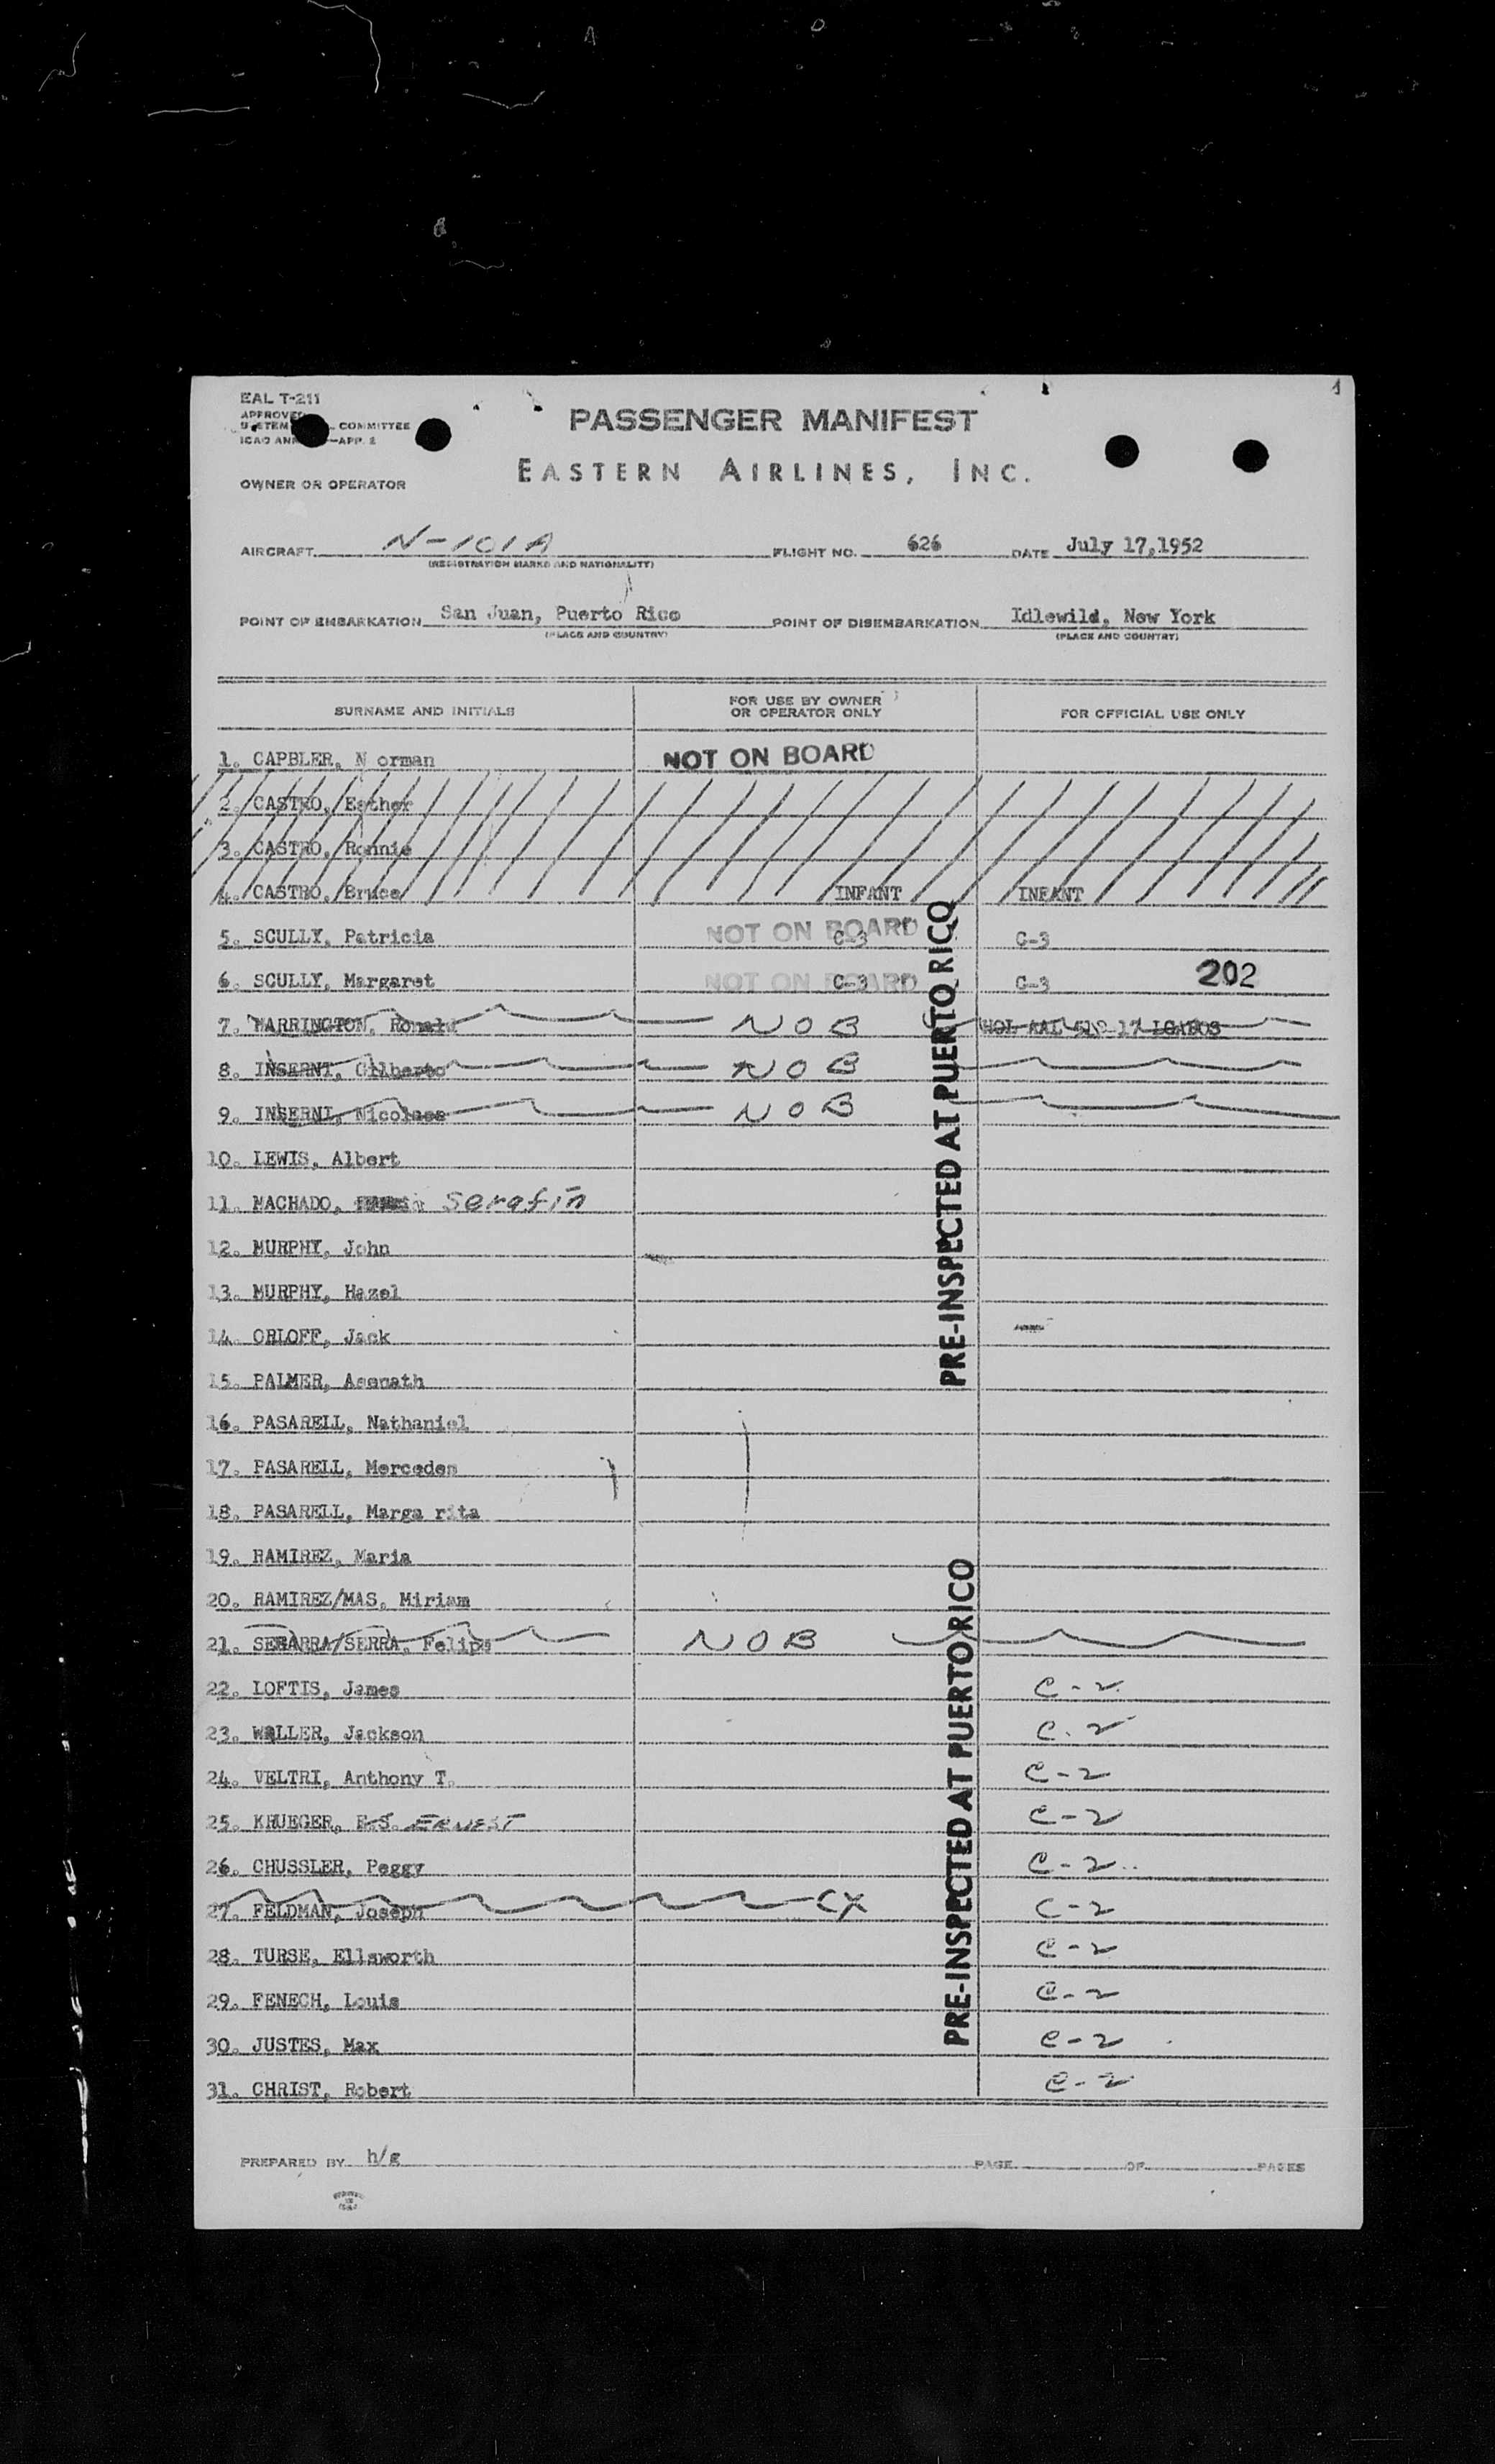 1
EAL T-211
APPROVED
COMMITTEE
ICAO ANN —APP. 2
PASSENGER MANIFEST
EASTERN AIRLINES, INC.
OWNER OR OPERATOR
AIRCRAFT N-101A FLIGHT NO. 626 DATE July 17,1952
(REGISTRATION MARKS AND NATIONALITY)
POINT OF EMBARKATION San Juan, Puerto Rico POINT OF DISEMBARKATION Idlewild, New York
(PLACE AND COUNTRY) (PLACE AND COUNTRY)
SURNAME AND INITIALS FOR USE BY OWNER OR OPERATOR ONLY FOR OFFICIAL USE ONLY
1. CAPBLER, N orman NOT ON BOARD
2. CASTRO, Esther
3. CASTRO, Ronnie
4. CASTRO, Bruce INFANT INFANT
5. SCULLY, Patricia NOT ON BOARD C-3 C-3
6. SCULLY, Margaret NOT ON BOARD C-3 C-3 202
7. HARRINGTON, Ronald NOB
8. INSERNI, Gilberto NOB
9. INSERNI, Nicolaes NOB
10. LEWIS, Albert
11. MACHADO, Serafin
12. MURPHY, John
13. MURPHY, Hazel
14. ORLOFF, Jack
15. PALMER, Asenath
16. PASARELL, Nathaniel
17. PASARELL, Mercedes
18. PASARELL, Marga rita
19. RAMIREZ, Maria
20. RAMIREZ/MAS, Miriam
21. SEBARRA/SERRA, Felipe NOB
22. LOFTIS, James C-2
23. WALLER, Jackson C-2
24. VELTRI, Anthony T. C-2
25. KRUEGER, E.S. ERNEST C-2
26. CHUSSLER, Peggy C-2
27. FELDMAN, Joseph CX C-2
28. TURSE, Ellsworth C-2
29. FENECH, Louis C-2
30. JUSTES, Max C-2
31. CHRIST, Robert C-2
PRE-INSPECTED AT PUERTO RICO
PRE-INSPECTED AT PUERTO RICO
PREPARED BY h/g PAGE OF PAGES